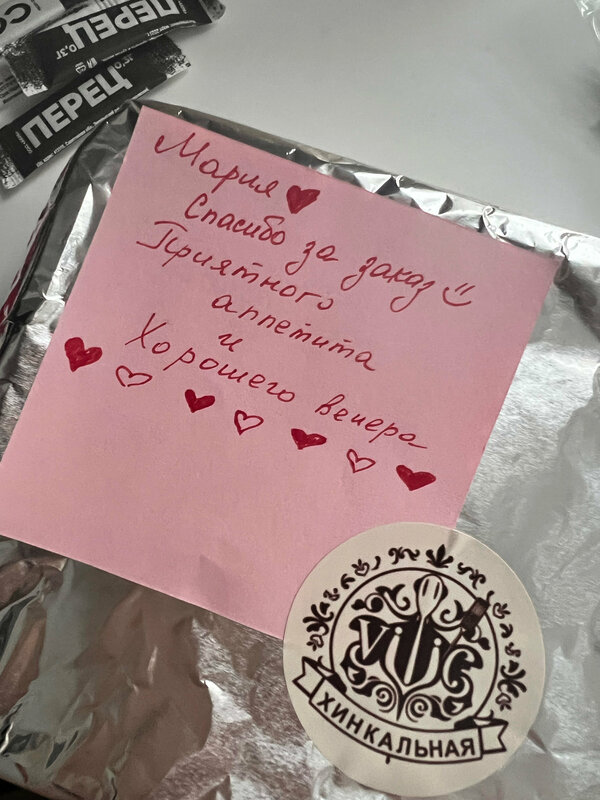 ПЕРЕЦ
0,3г
ПЕРЕЦ
Мария
Спасибо за заказ
Приятного
аппетита
и
Хорошего вечера
ViViC
ХИНКАЛЬНАЯ